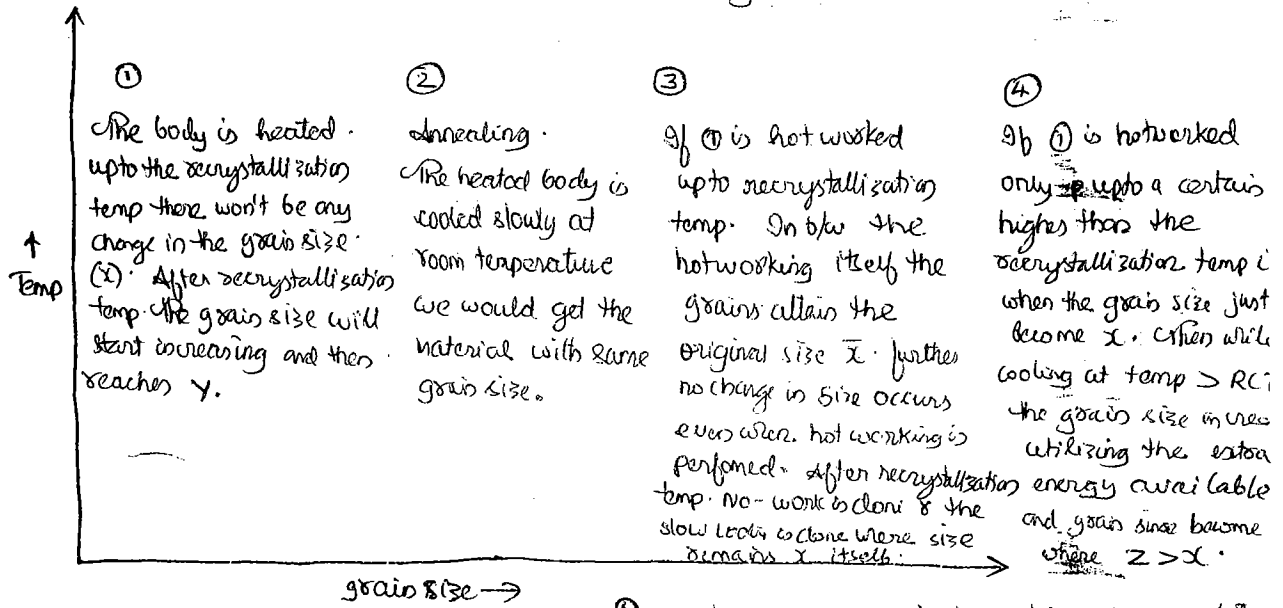 ①
The body is heated.
upto the recrystallization
temp there won't be any
change in the grain size.
(x). After recrystallization
temp. the grain size will
start increasing and then
reaches y.
②
Annealing.
The heated body is
cooled slowly at
room temperature
we would get the
material with same
grain size.
③
If ① is hot worked
upto recrystallization
temp. In b/w the
hotworking itself the
grains attain the
original size x. further
no change in size occurs
even when hot working is
performed. After recrystallization
temp. No-work is done & the
slow is done where size
remains x itself.
④
If ① is hotworked
only upto a certain
higher than the
recrystallization temp i
when the grain size just
become x. then while
cooling at temp > RCT
the grain size increa
utilizing the extra
energy available
and grain become
where z > x.
↑
Temp
grain size →